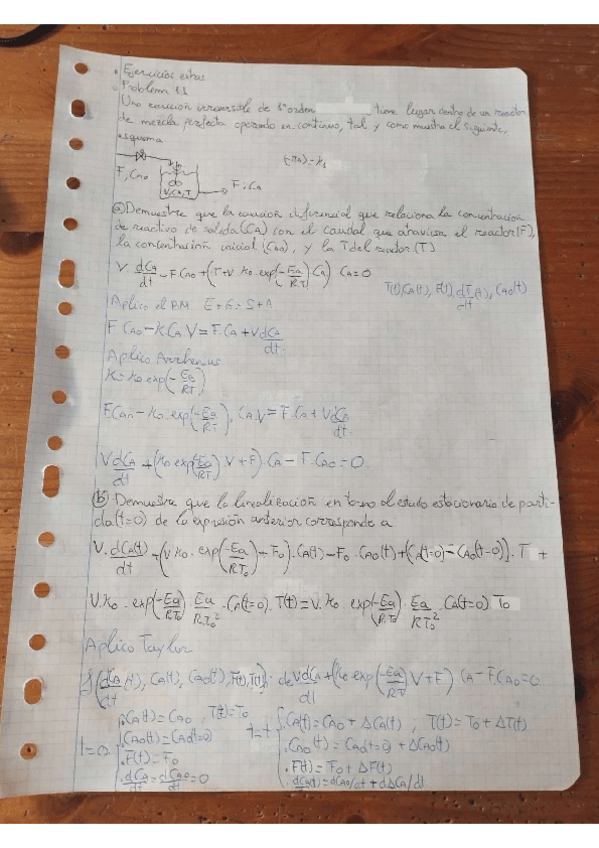 Ejercicios extras
Problema 1.1
Una reacción irreversible de 1er orden tiene lugar dentro de un reactor
de mezcla perfecta operando en continuo, tal y como muestra el siguiente
esquema
F, CA0
V, CA, T
F; CA
a) Demuestre que la ecuación diferencial que relaciona la concentración
de reactivo de salida (CA) con el caudal que atraviesa el reactor (F),
la concentración inicial (CA0), y la T del reactor (T)
V dCA/dt - F CA0 + (F + V K0 · exp(-Ea/RT)) CA = 0
T(t), CA(t), F(t), dCA/dt (t), CA0(t)
Aplico el BM E + G = S + A
F CA0 - K CA V = F · CA + V dCA/dt
Aplico Arrhenius
K = K0 exp(-Ea/RT)
F CA0 - K0 · exp(-Ea/RT) · CA · V = F · CA + V dCA/dt
V dCA/dt + (K0 exp(-Ea/RT) V + F) · CA - F · CA0 = 0
b) Demuestre que la linealización en torno al estado estacionario de parti-
da (t=0) de la expresión anterior corresponde a
V · dCA(t)/dt + (V K0 · exp(-Ea/RT0) + F0) · CA(t) - F0 · CA0(t) + (CA(t=0) - CA0(t=0)) · +
V · K0 · exp(-Ea/RT0) · Ea/RT0² · CA(t=0) · T(t) = V · K0 · exp(-Ea/RT0) · Ea/RT0² · CA(t=0) T0
Aplico Taylor
f(dCA/dt (t), CA(t), CA0(t), F(t), T(t)): de V dCA/dt + (K0 exp(-Ea/RT) V + F) CA - F · CA0 = 0
t=0
· CA(t) = CA0 , T(t) = T0
· CA0(t) = CA0(t=0)
· F(t) = F0
· dCA/dt = dCA0/dt = 0
t=t
· CA(t) = CA0 + ΔCA(t) ; T(t) = T0 + ΔT(t)
· CA0(t) = CA0(t=0) + ΔCA0(t)
· F(t) = F0 + ΔF(t)
· dCA(t)/dt = dCA0/dt + dΔCA/dt